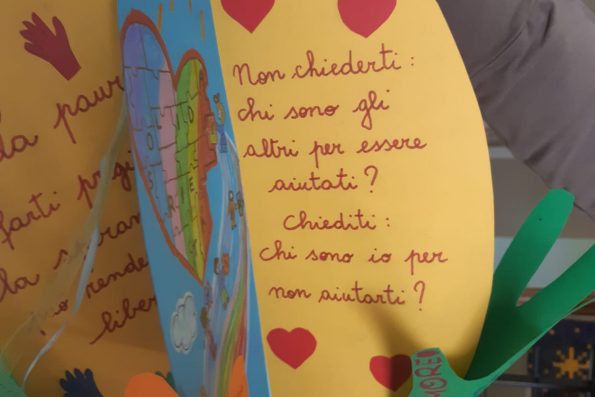 la paur
farti prigi
la speran
può render
liber
Non chiederti:
chi sono gli
altri per essere
aiutati?
Chiediti:
chi sono io per
non aiutarti?
MORE